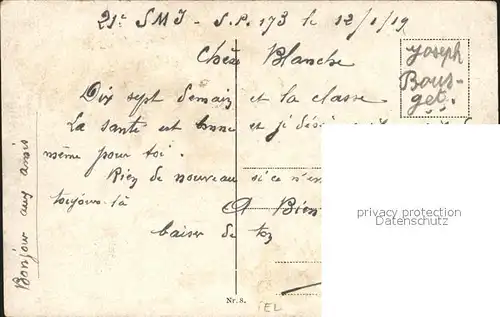 21e SMI - S.P. 173 le 12/1/19
Chère Blanche
Joseph
Bous-
get.
Dix sept demain et la classe
La santé est bonne et je désire
même pour toi.
Rien de nouveau si ce n'es
toujours là
A Bien
baiser de ton
Bonjour aux amis
privacy protection
Datenschutz
Nr. 8.
EL